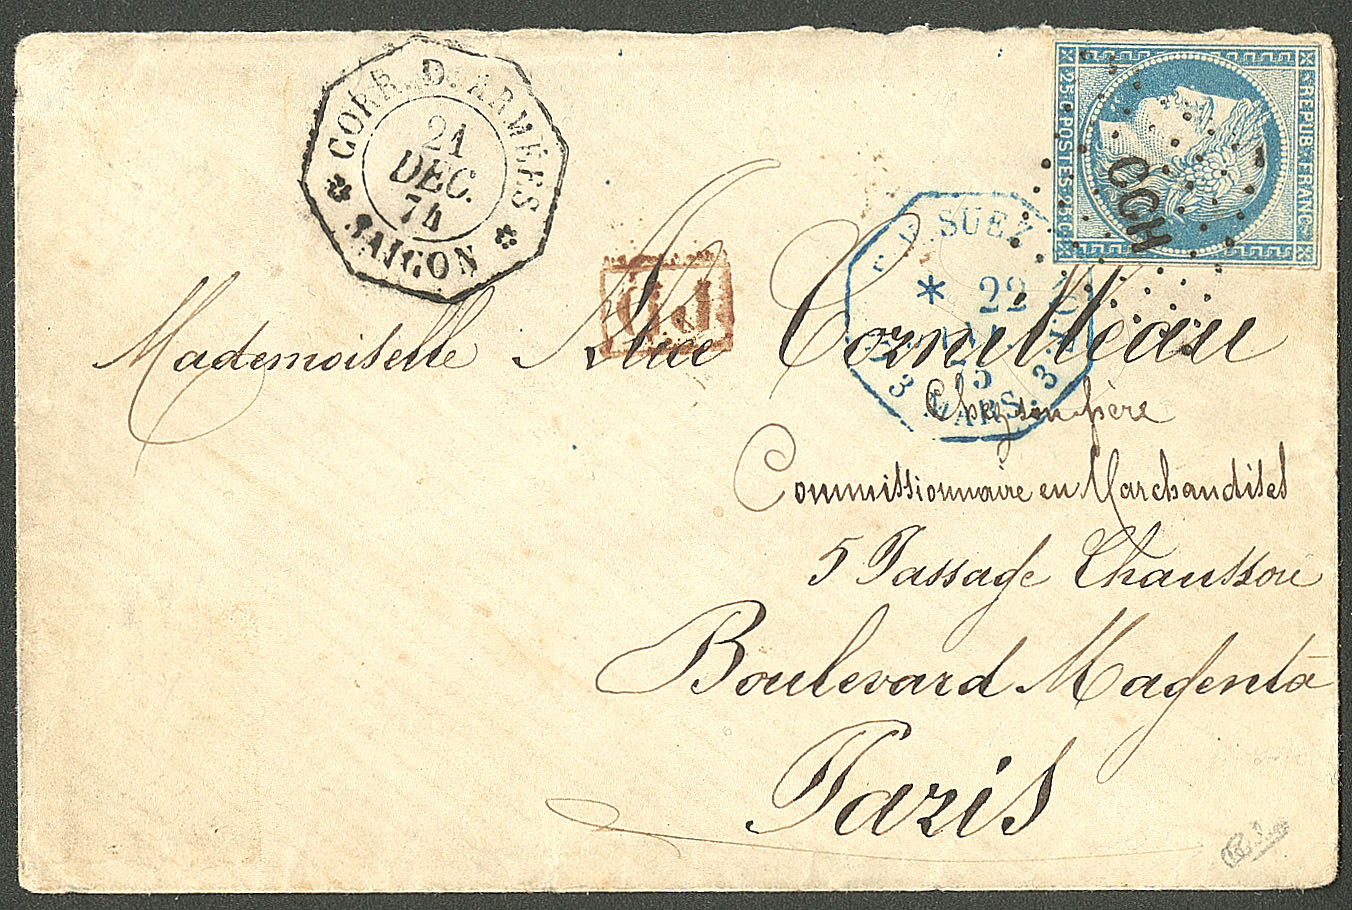 CORR. D. ARMEES
21
DEC.
74
SAIGON
REPUB. FRANC.
25.C. POSTES. 25.C.
CCH
SUEZ
22
5
3 MARS. 3
P.D.
Mademoiselle Alice Cornilleau
Chez son père
Commissionnaire en Marchandises
5 Passage Chausson
Boulevard Magenta
Paris